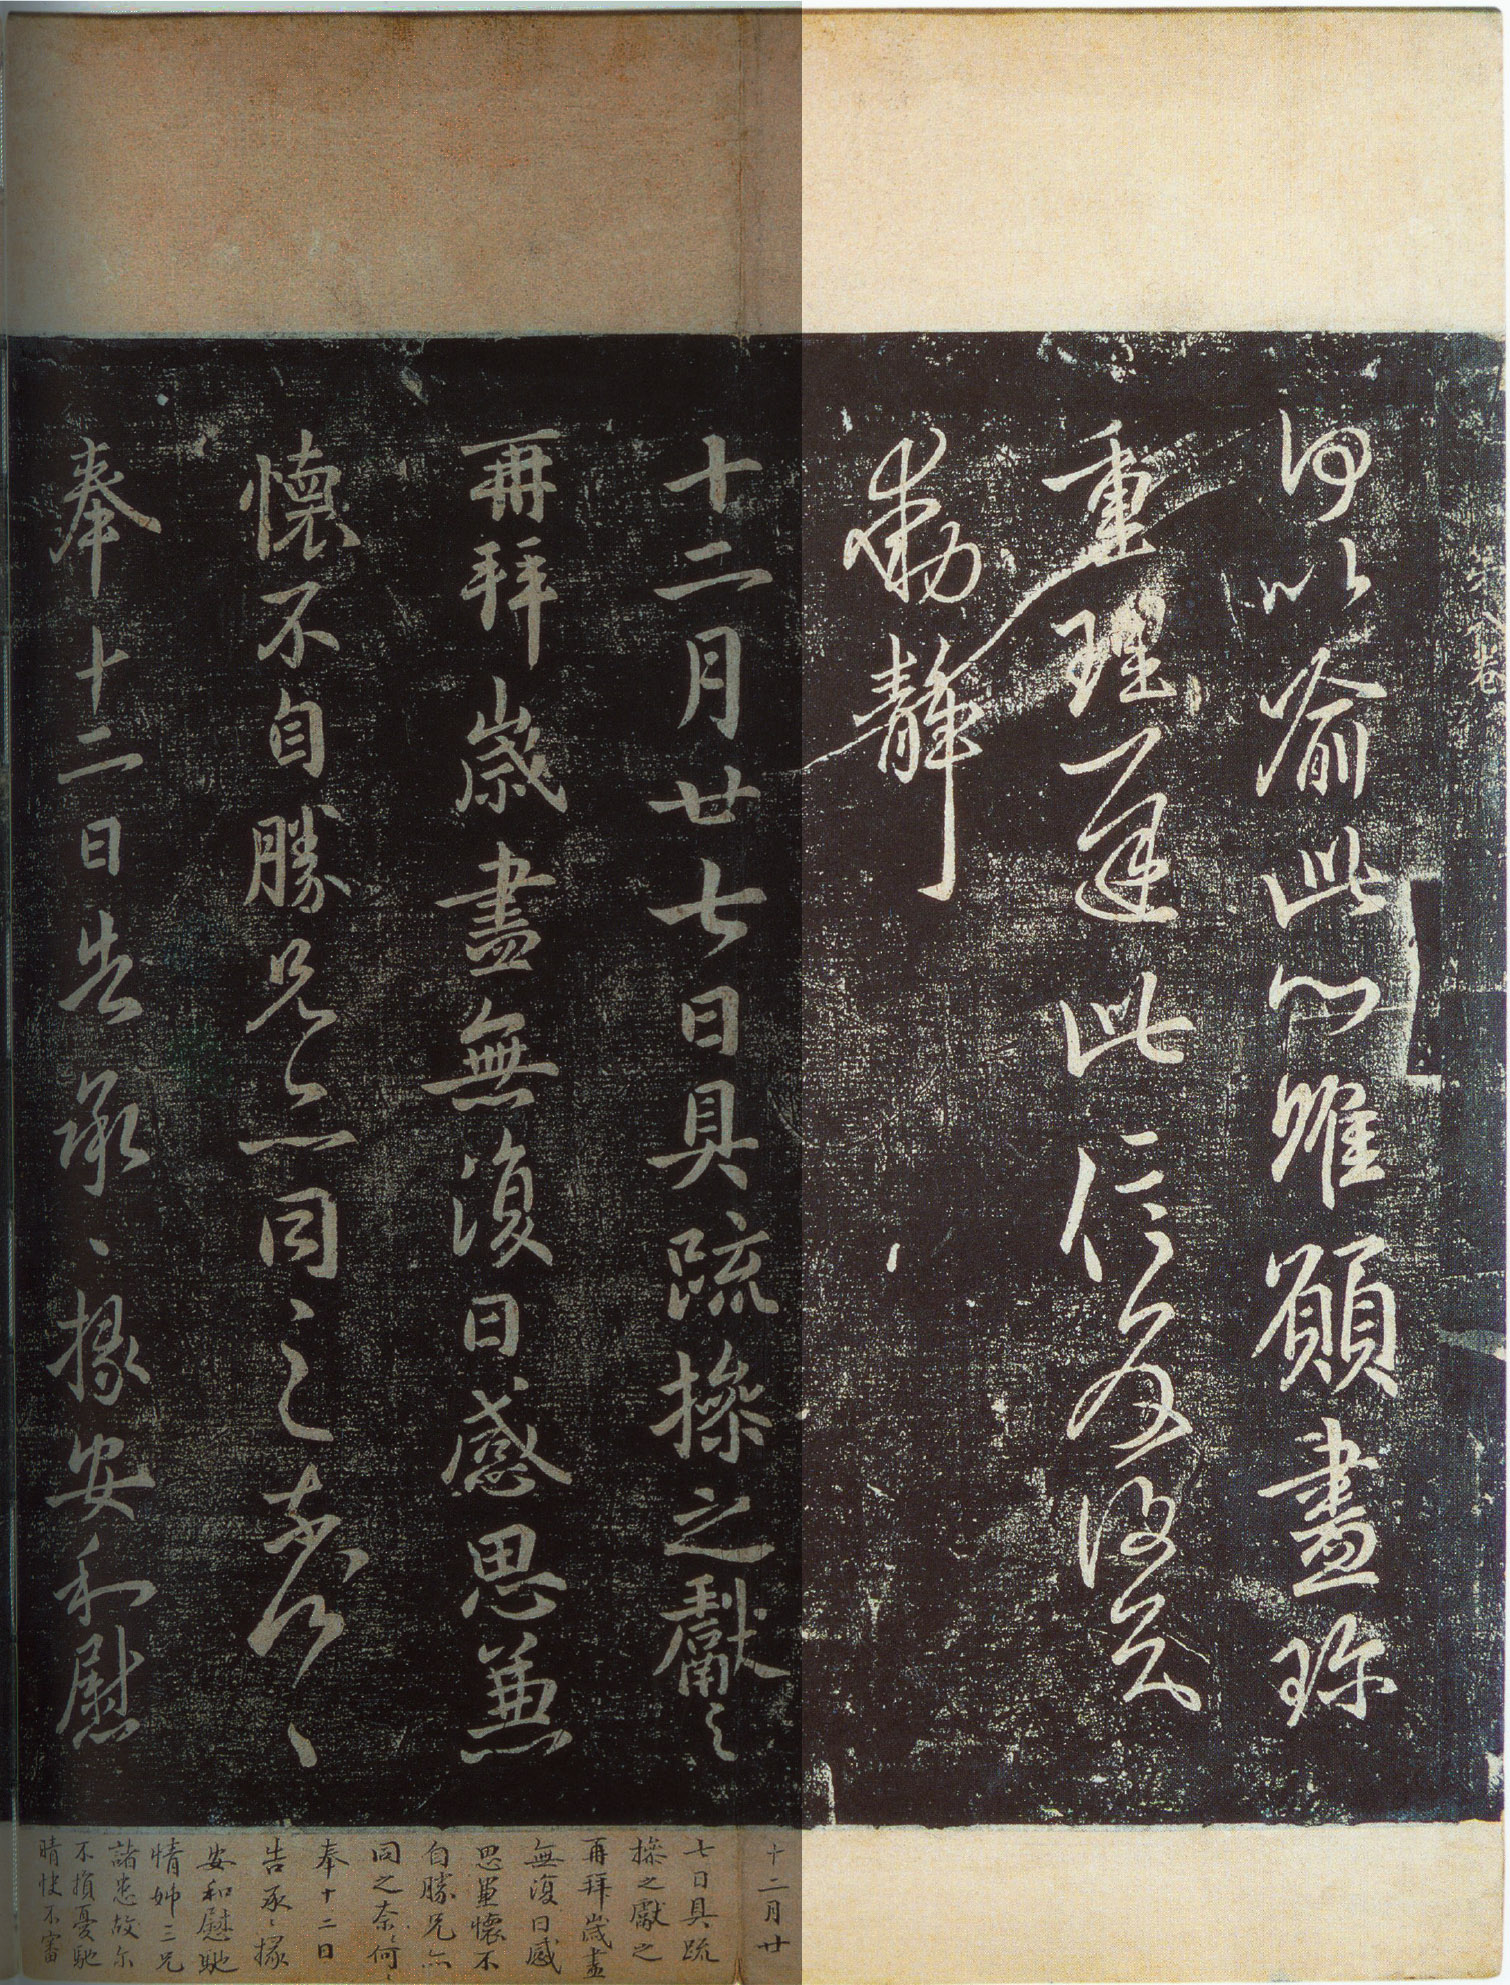 何以喻此心唯願盡珍
重理遲此信反復知
動靜
十二月廿七日具疏操之獻之
再拜歲盡無復日感思兼
懷不自勝兄亦同之奈何〻
奉十二日告承〻掾安和慰
十二月廿
七日具疏
操之獻之
再拜歲盡
無復日感
思兼懷不
自勝兄亦
同之奈〻何〻
奉十二日
告承〻掾
安和慰馳
情姉三兄
諸患故尔
不損憂馳
晴快不審